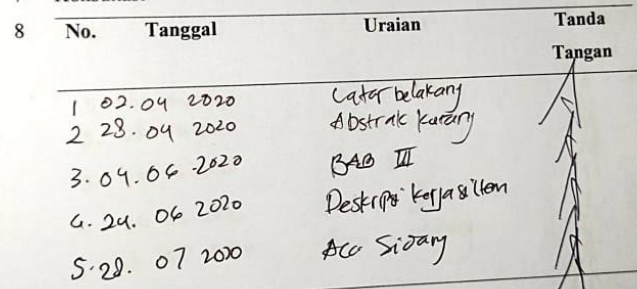 8 No. Tanggal Uraian Tanda Tangan
1 02.04 2020 Latar belakang
2 28.04 2020 Abstrak kurang
3. 04.06 2020 BAB III
4. 24. 06 2020 Deskripsi kerja sistem
5. 28. 07 2020 Acc Sidang